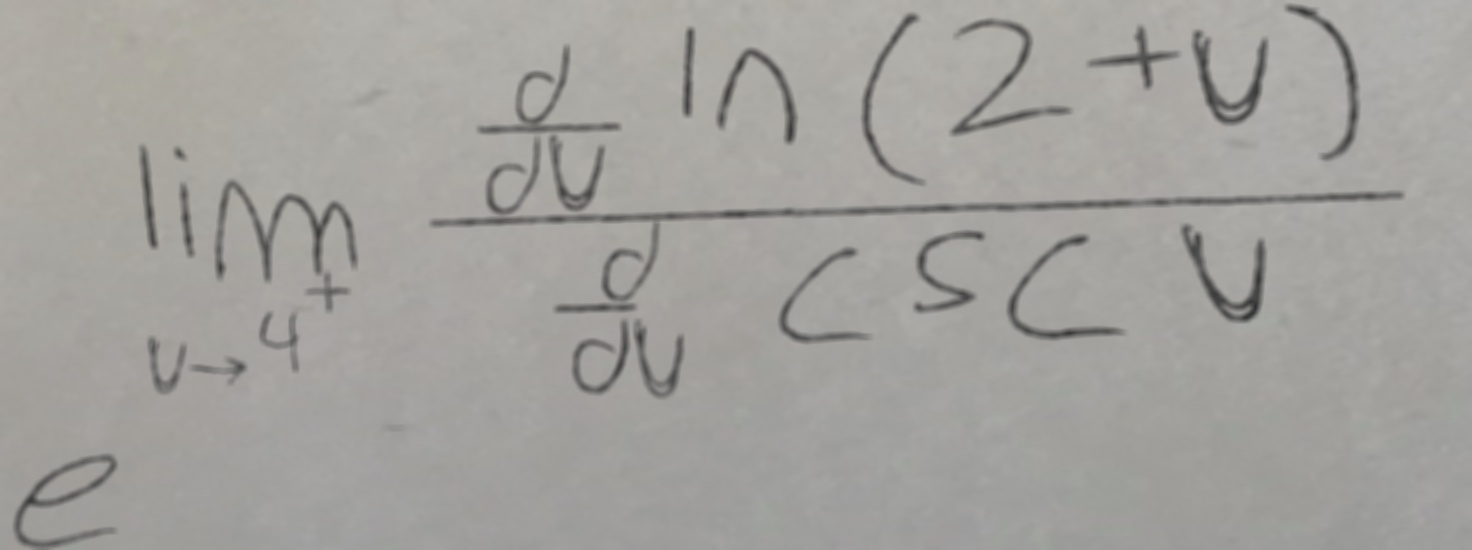 e^{\lim_{v \to 4^+} \frac{\frac{d}{dv} \ln(2+v)}{\frac{d}{dv} \csc v}}